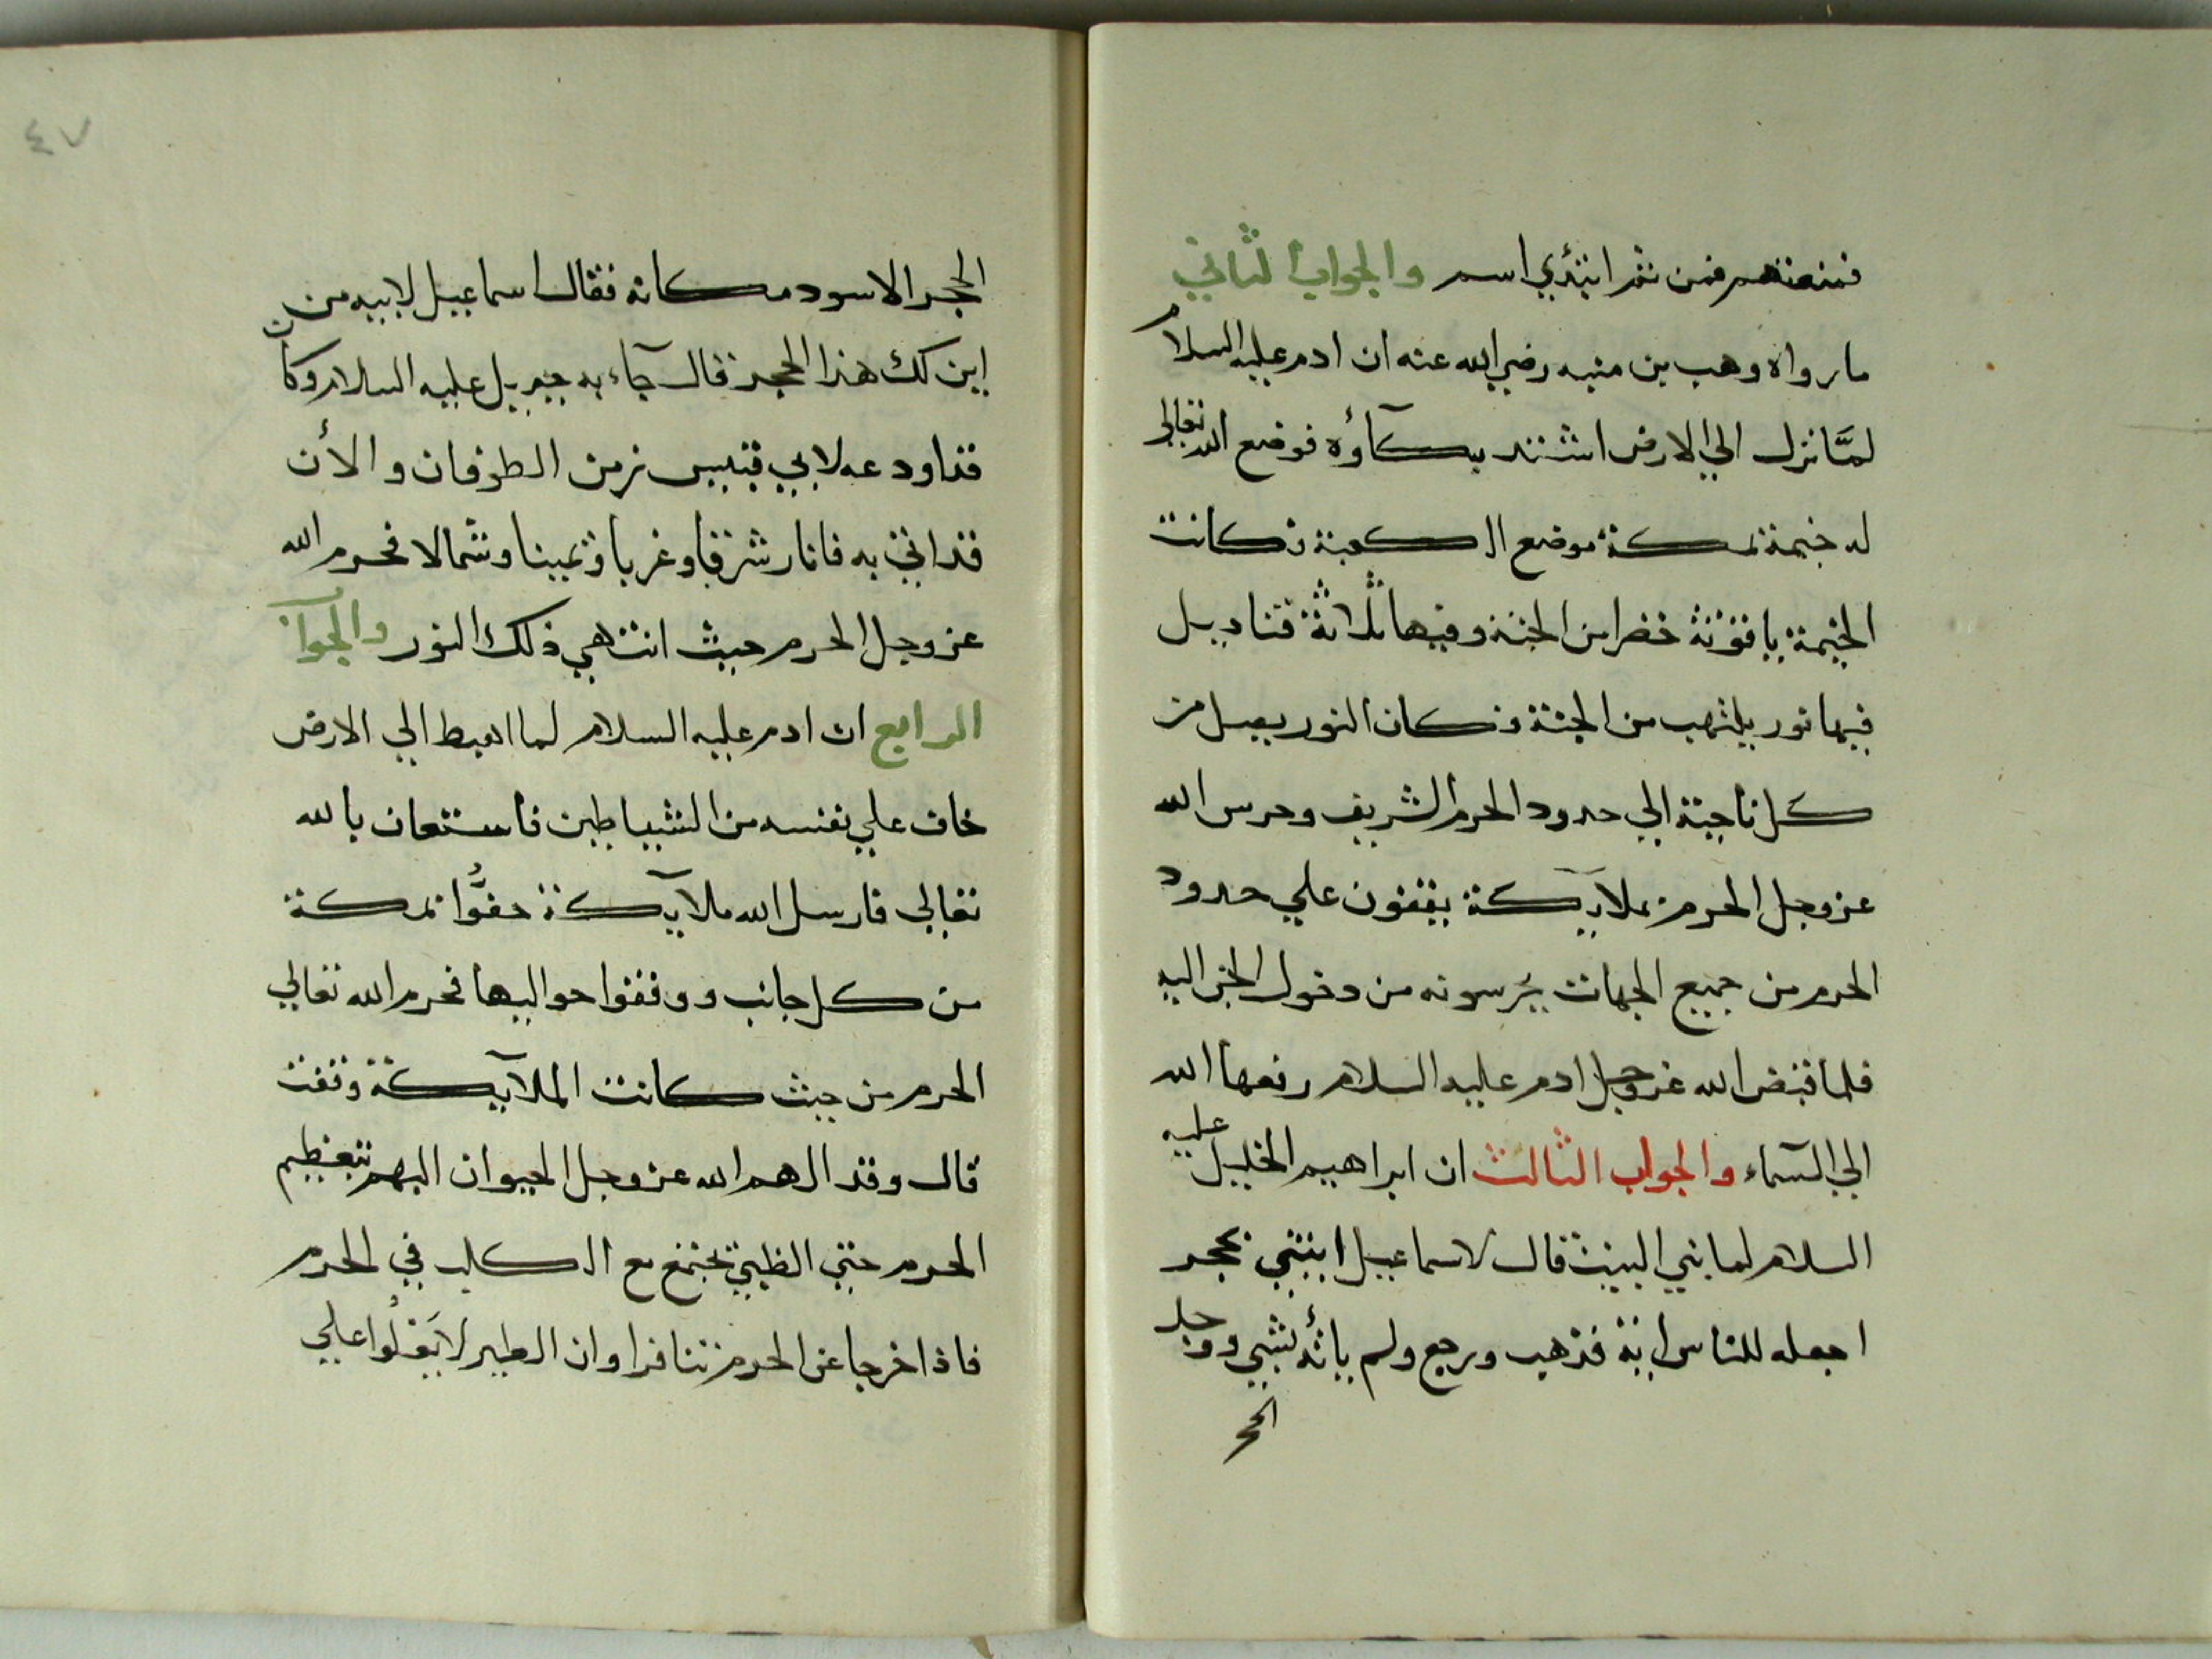 فمنعتهم فمن ثم ابتدي اسم والجواب الثاني
ما رواه وهب بن منبه رضي الله عنه ان ادم عليه السلام
لمَّا نزل الي الارض اشتد بكآؤه فوضع الله تعالي
له خيمة بمكة موضع الكعبة وكانت
الخيمة ياقوتة خضرا من الجنة وفيها ثلاثة قناديل
فيها نور يلتهب من الجنة وكان النور يصل من
كل ناحية الي حدود الحرم الشريف وحرس الله
عز وجل الحرم بملآيكة يقفون علي حدود
الحرم من جميع الجهات يحرسونه من دخول الجن اليه
فلما قبض الله عز وجل ادم عليه السلام رفعها الله
الي السمآء والجواب الثالث ان ابراهيم الخليل عليه
السلام لما بني البيت قال لاسماعيل ابتني بحجر
اجعله للناس اية فذهب ورجع ولم ياته بشي ووجد
الحجر
٤٧
الحجر الاسود مكانه فقال اسماعيل لابيه من
اين لك هذا الحجر قال جآء به جبريل عليه السلام وكان
قد اودعه لابي قبيس زمن الطوفان والأن
قد اتي به فانار شرقا وغربا ويمينا وشمالا فحرم الله
عز وجل الحرم حيث انتهي ذلك النور والجواب
الرابع ان ادم عليه السلام لما اهبط الي الارض
خاف علي نفسه من الشياطين فاستعان بالله
تعالي فارسل الله ملآيكة حفُّوا بمكة
من كل جانب ووقفوا حواليها فحرم الله تعالي
الحرم من حيث كانت الملآيكة وقفت
قال وقد الهم الله عز وجل الحيوان البهم بتعظيم
الحرم حتي الظبي يجتمع مع الكلب في الحرم
فاذا خرجا عن الحرم تنافرا وان الطير لا يَعْلُوا علي